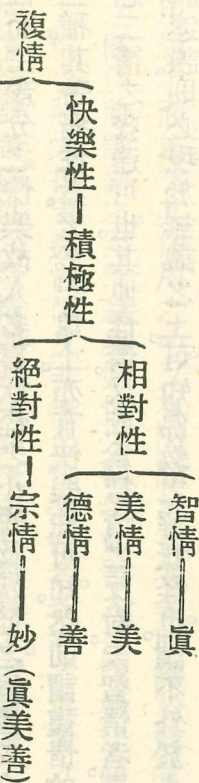 複情
快樂性—積極性
相對性
智情—眞
美情—美
德情—善
絕對性—宗情—妙(眞美善)